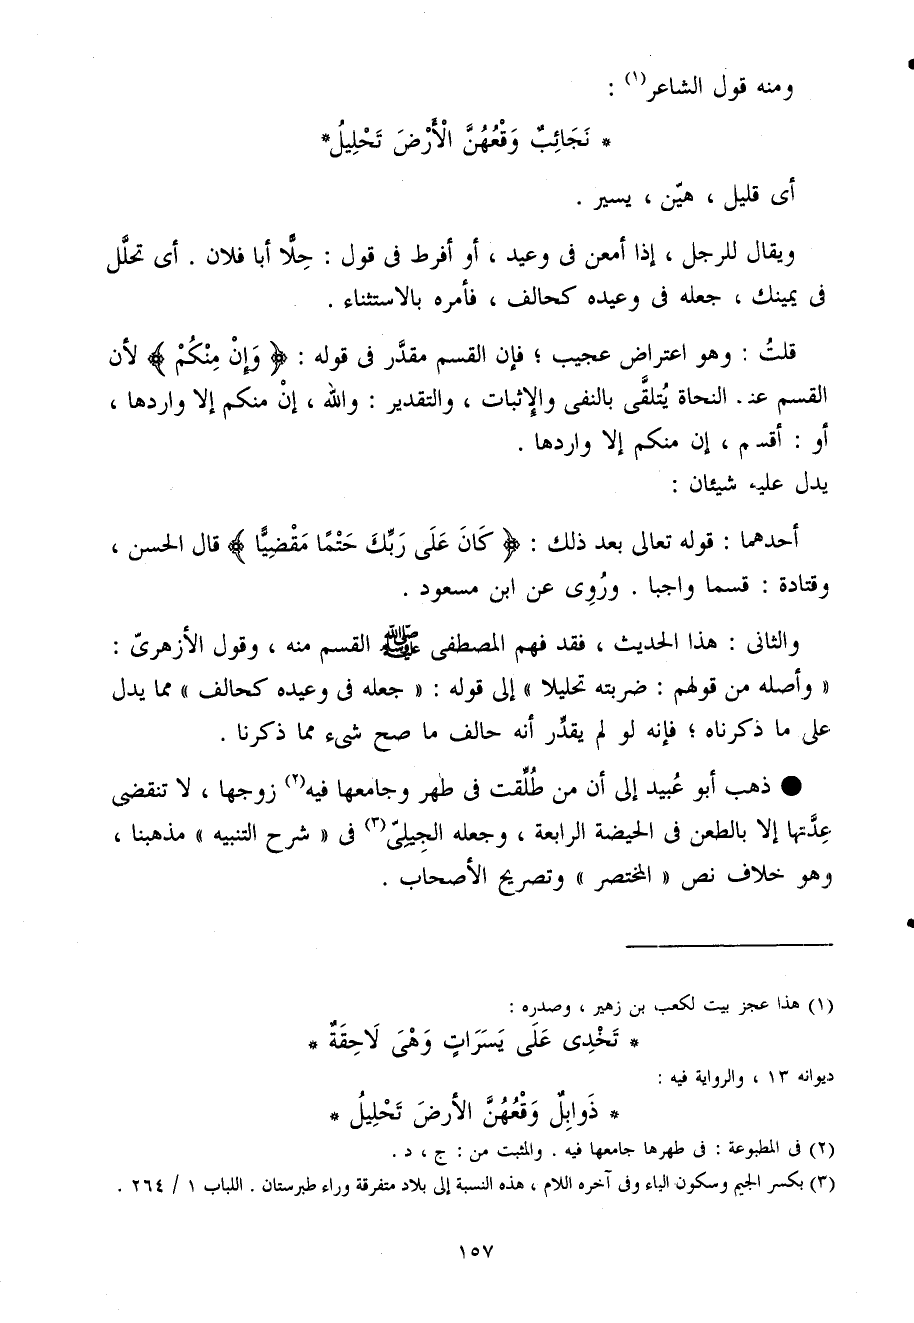 ومنه قول الشاعر(١) :
* نَجَائِبٌ وَقْعُهُنَّ الْأَرْضَ تَحْلِيلُ*
أى قليل ، هيّن ، يسير .
ويقال للرجل ، إذا أمعن فى وعيد ، أو أفرط فى قول : حِلًّا أبا فلان . أى تحلَّل
فى يمينك ، جعله فى وعيده كحالف ، فأمره بالاستثناء .
قلتُ : وهو اعتراض عجيب ؛ فإن القسم مقدَّر فى قوله : ﴿ وَإِنْ مِنْكُمْ ﴾ لأن
القسم عند النحاة يُتلقَّى بالنفى والإثبات ، والتقدير : والله ، إنْ منكم إلا واردها ،
أو : أقسم ، إن منكم إلا واردها .
يدل عليه شيئان :
أحدهما : قوله تعالى بعد ذلك : ﴿ كَانَ عَلَى رَبِّكَ حَتْمًا مَقْضِيًّا ﴾ قال الحسن ،
وقتادة : قسما واجبا . ورُوِى عن ابن مسعود .
والثانى : هذا الحديث ، فقد فهم المصطفى ﷺ القسم منه ، وقول الأزهرىّ :
« وأصله من قولهم : ضربته تحليلا » إلى قوله : « جعله فى وعيده كحالف » مما يدل
على ما ذكرناه ؛ فإنه لو لم يقدَّر أنه حالف ما صح شىء مما ذكرنا .
● ذهب أبو عُبيد إلى أن من طُلِّقت فى طهر وجامعها فيه(٢) زوجها ، لا تنقضى
عِدَّتها إلا بالطعن فى الحيضة الرابعة ، وجعله الجِيلِىّ(٣) فى « شرح التنبيه » مذهبنا ،
وهو خلاف نص « المختصر » وتصريح الأصحاب .
(١) هذا عجز بيت لكعب بن زهير ، وصدره :
* تَخْدِى عَلَى يَسَرَاتٍ وَهْىَ لَاحِقَةٌ *
ديوانه ١٣ ، والرواية فيه :
* ذَوابِلٌ وَقْعُهُنَّ الأرضَ تَحْلِيلُ *
(٢) فى المطبوعة : فى طهرها جامعها فيه . والمثبت من : ج ، د .
(٣) بكسر الجيم وسكون الياء وفى آخره اللام ، هذه النسبة إلى بلاد متفرقة وراء طبرستان . اللباب ١ / ٢٦٤ .
١٥٧